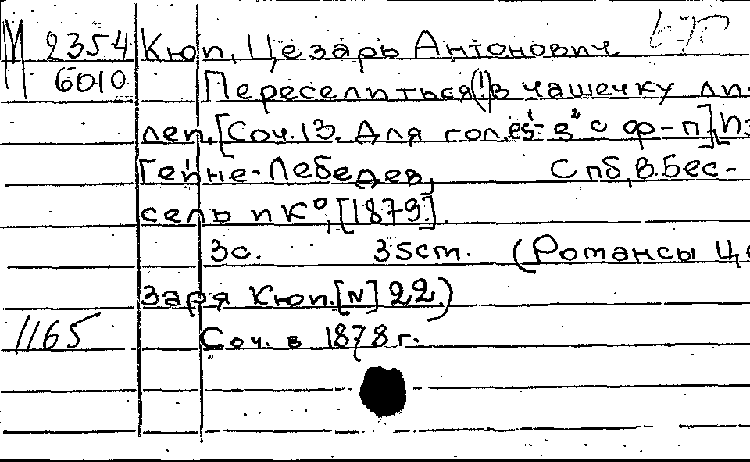 М 2354 Кюи, Цезарь Антонович
6010 Переселиться(!) в чашечку ли-
леи. [Соч. 13. Для гол. es'-g² с ф-п].
Гейне-Лебедев, Спб, В. Бес-
сель и К⁰, [1879].
3с. 35cm. (Романсы Це
заря Кюи. [N] 22.)
1165 Соч. в 1878 г.